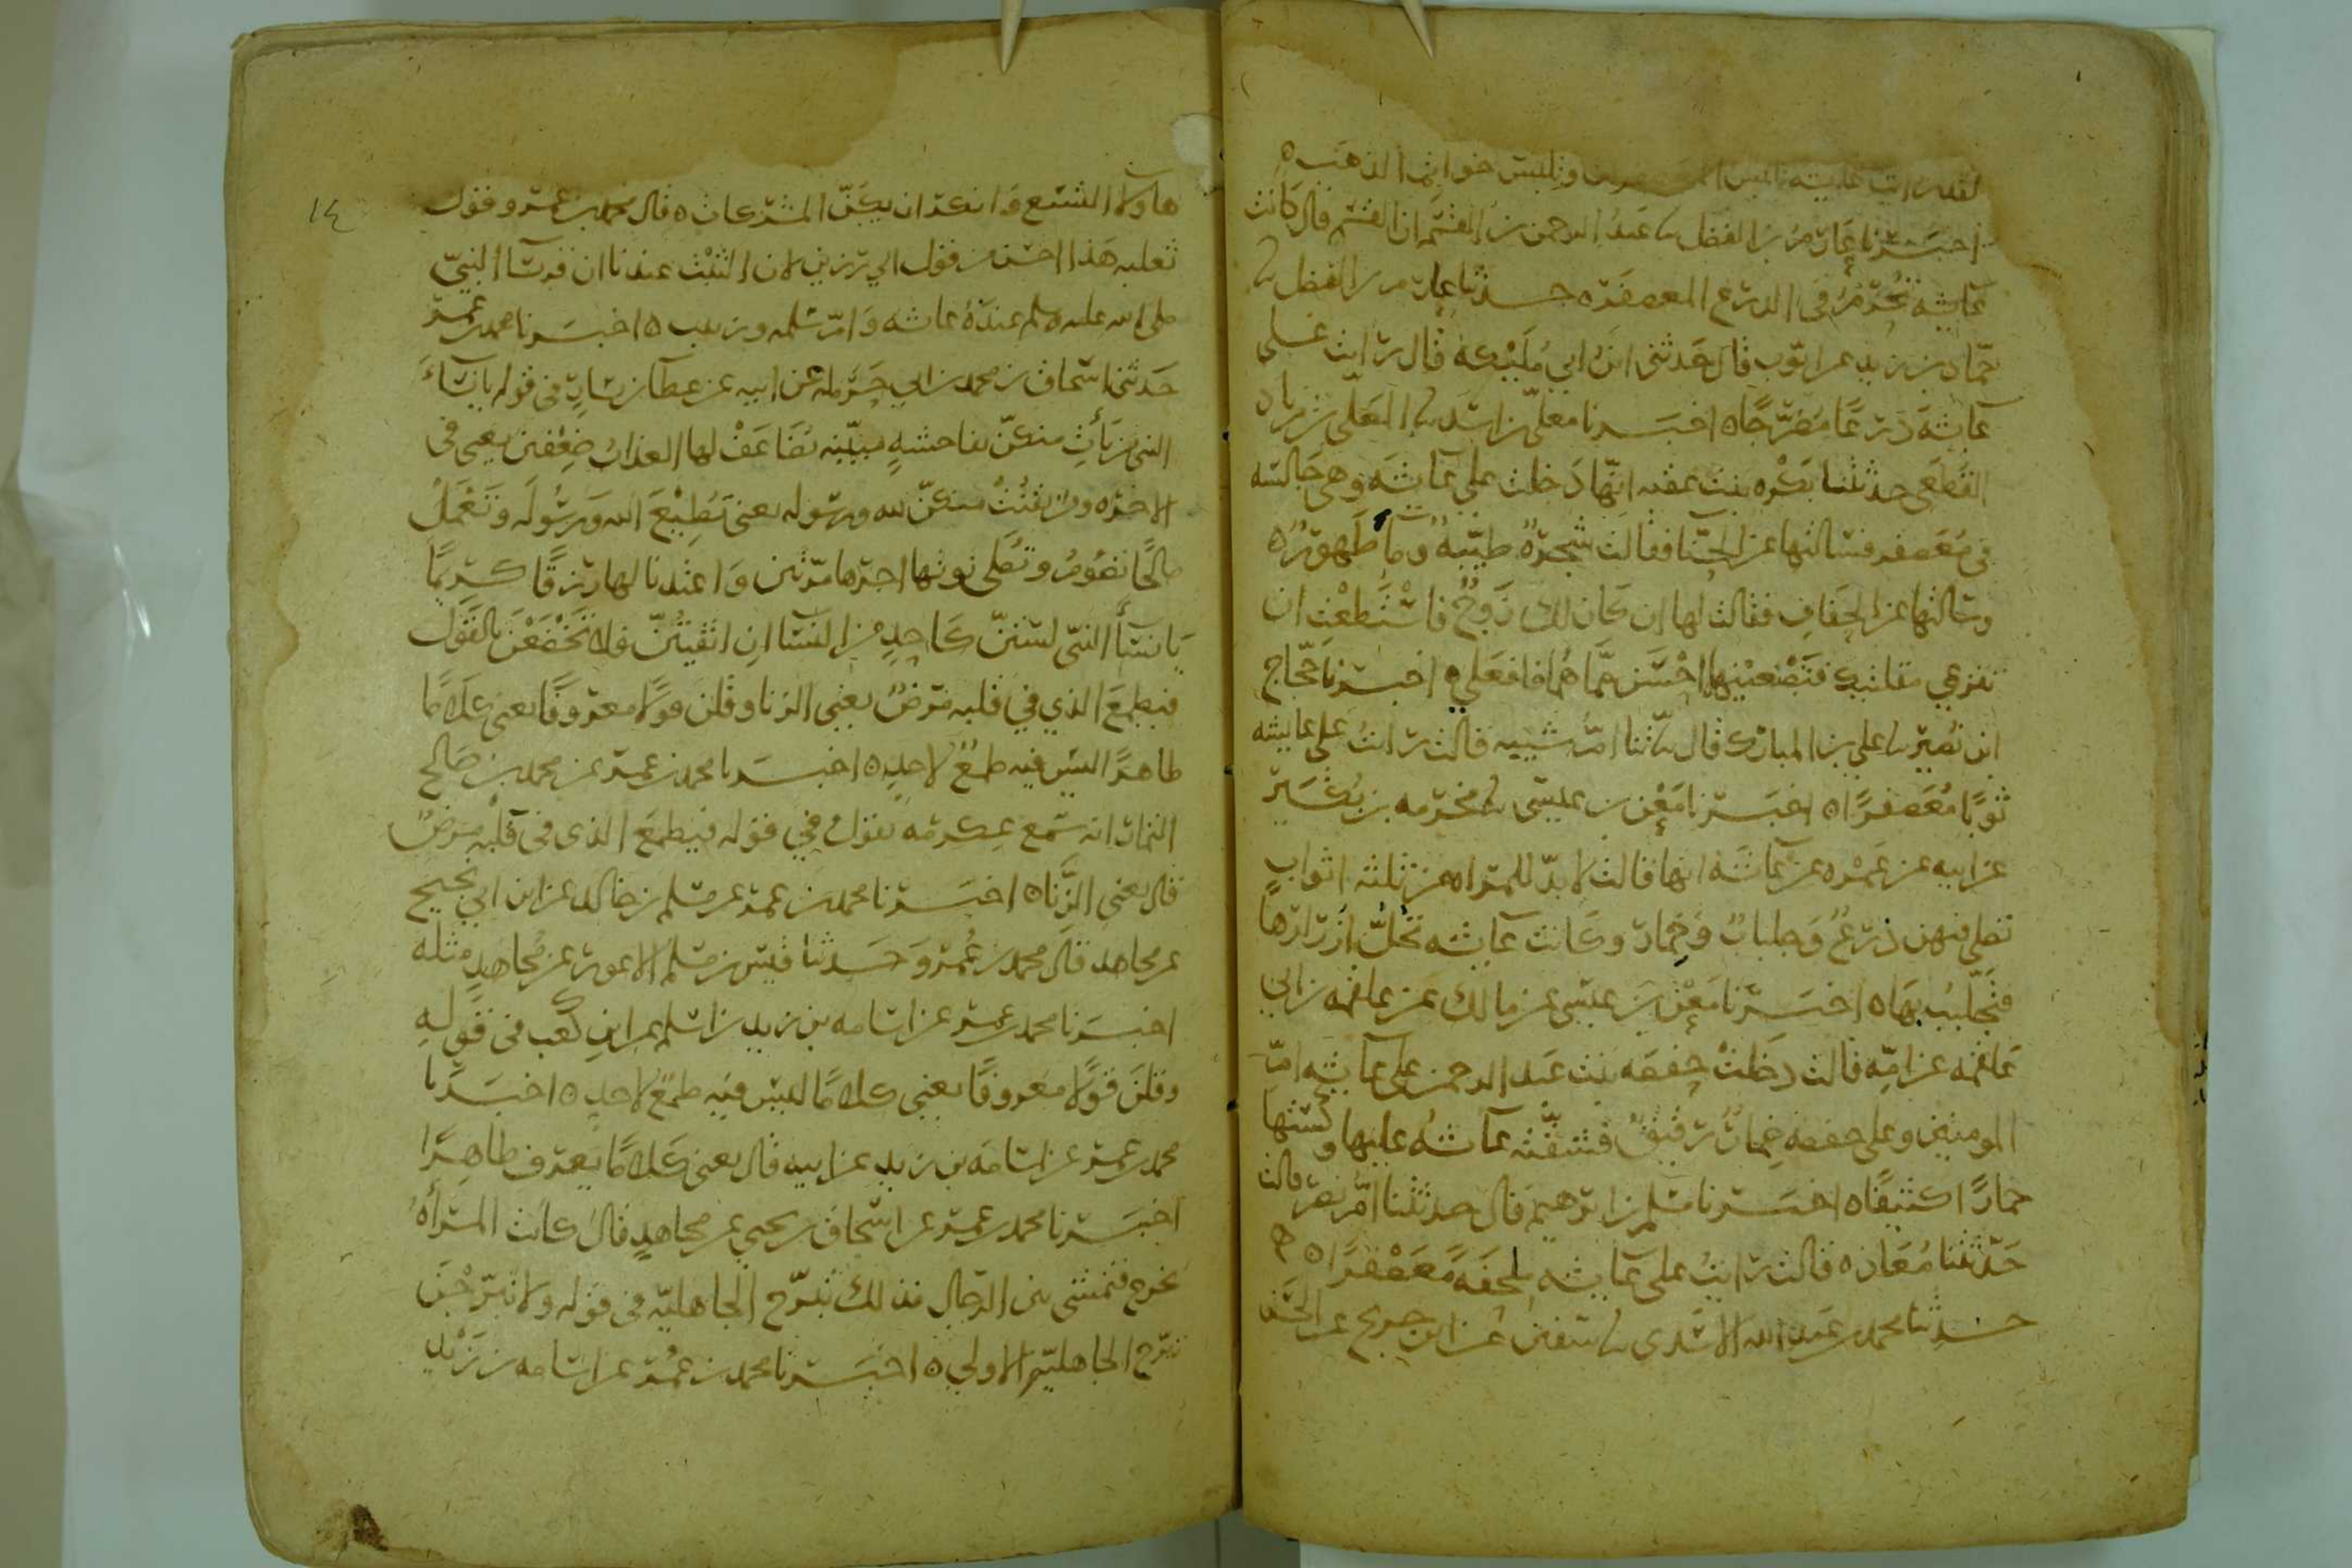 لقد رايت عايشه تلبس المعصفر وتلبس خواتيم الذهب ٥
اخبرنا عارم بن الفضل نا عبد الرحمن بن القسم ان القسم قال كانت
عايشه تحرم في الدرع المعصفره حدثنا عارم بن الفضل نا
حماد بن زيد عن ايوب قال حدثني ابن ابي مليكه قال رايت على
عايشه درعا مضرجا ٥ اخبرنا معلى بن اسد نا المعلى بن زياد
القطعي حدثتنا بكره بنت عقبه انها دخلت على عايشه وهي جالسه
في معصفر فسالتها عن الحنا فقالت شجرة طيبة وما طهور ٥
وسالتها عن الحفاف فقالت لها ان كان لك زوج فاستطعت ان
تنزعي مقلتيك فتصنعينها احسن مما هما فافعلي ٥ اخبرنا حجاج
ابن نصير نا علي بن المبارك قال حدثتنا ام شيبه قالت رايت على عايشه
ثوبا معصفرا ٥ اخبرنا معن بن عيسى نا مخرمه بن بكير
عن ابيه عن عمره عن عايشه انها قالت لا بد للمراه من ثلثه اثواب
تصلي فيهن درع وجلباب وخمار وكانت عايشه تحل ازرارها
فتجلبب بها ٥ اخبرنا معن بن عيسى عن مالك عن علقمه بن ابي
علقمه عن امه قالت دخلت حفصه بنت عبد الرحمن على عايشه ام
المومنين وعلى حفصه خمار رقيق فشقته عايشه عليها وكستها
خمارا كثيفا ٥ اخبرنا مسلم بن ابرهيم قال حدثتنا ام نصر قالت
حدثتنا معاذه قالت رايت على عايشه ملحفة معصفرا ٥
حدثنا محمد بن عبد الله الاسدي نا سفين عن ابن جريج عن الحسن
١٤
هاولا التسع وانكر ان يكن المشركات ٥ قال محمد بن عمر وقول
ثعلبه هذا احسن من قول ابي رزين لان الثبت عندنا ان قد نسا النبي
صلى الله عليه وسلم عنده عايشه وام سلمه وزينب ٥ اخبرنا محمد بن عمر
حدثني اسحاق بن محمد بن ابي حرمله عن ابيه عن عطا بن يسار في قوله يا نساء
النبي من يأت منكن بفاحشة مبينه يضاعف لها العذاب ضعفين يعني في
الاخره ومن يقنت منكن لله ورسوله يعني تطيع الله ورسوله وتعمل
صالحا تصوم وتصلي نوتها اجرها مرتين واعتدنا لها رزقا كريما
يا نسا النبي لستن كاحد من النسا ان اتقيتن فلا تخضعن بالقول
فيطمع الذي في قلبه مرض يعني الزنا وقلن قولا معروفا يعني كلاما
ظاهرا ليس فيه طمع لاحد ٥ اخبرنا محمد بن عمر عن محمد بن صالح
التمار انه سمع عكرمه يقول في قوله فيطمع الذي في قلبه مرض
قال يعني الزنا ٥ اخبرنا محمد بن عمر عن مسلم بن خالد عن ابن ابي نجيح
عن مجاهد قال محمد بن عمر وحدثنا قيس بن مسلم الاعور عن مجاهد مثله
اخبرنا محمد بن عمر عن اسامه بن زيد بن اسلم عن ابن كعب في قوله
وقلن قولا معروفا يعني كلاما ليس فيه طمع لاحد ٥ اخبرنا
محمد بن عمر عن اسامه بن زيد عن ابيه قال يعني كلاما يعرف ظاهرا
اخبرنا محمد بن عمر عن اسحاق بن يحيى عن مجاهد قال كانت المرأه
تخرج فتمشى بين الرجال فذلك تبرج الجاهليه في قوله ولا تبرجن
تبرج الجاهليه الاولى ٥ اخبرنا محمد بن عمر عن اسامه بن زيد